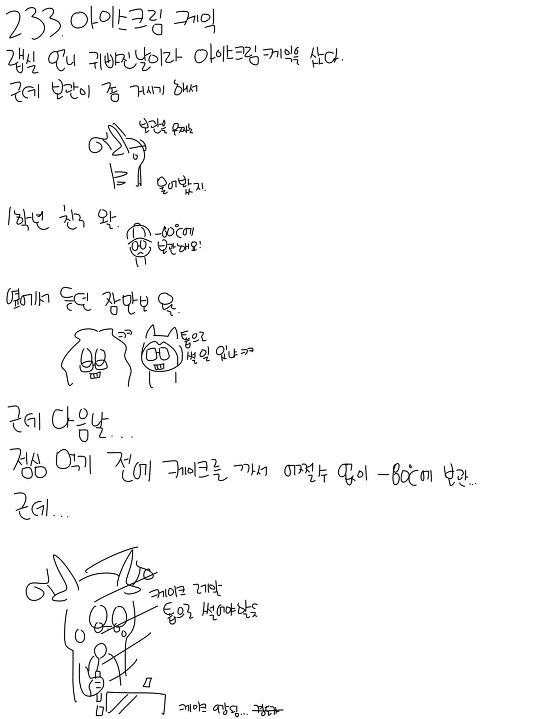 233. 아이스크림 케익
랩실 언니 귀빠진날이라 아이스크림케익을 샀다.
근데 보관이 좀 거시기 해서
보관을
물어봤지.
1학년 친구 왈.
-80℃에
보관해요!
옆에서 듣던 잠만보 왈.
ㅋㅋ
톱으로
썰일 있냐ㅋㅋ
근데 다음날...
점심 먹기 전에 케이크를 까서 어쩔수 없이 -80℃에 보관...
근데...
케이크
톱으로 썰어야할듯
케이크